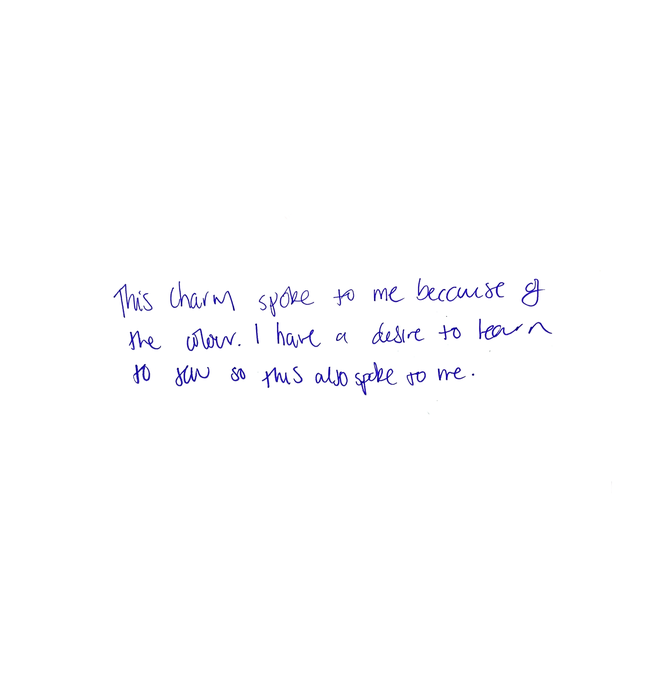 This charm spoke to me because of
the colour. I have a desire to learn
to sew so this also spoke to me.